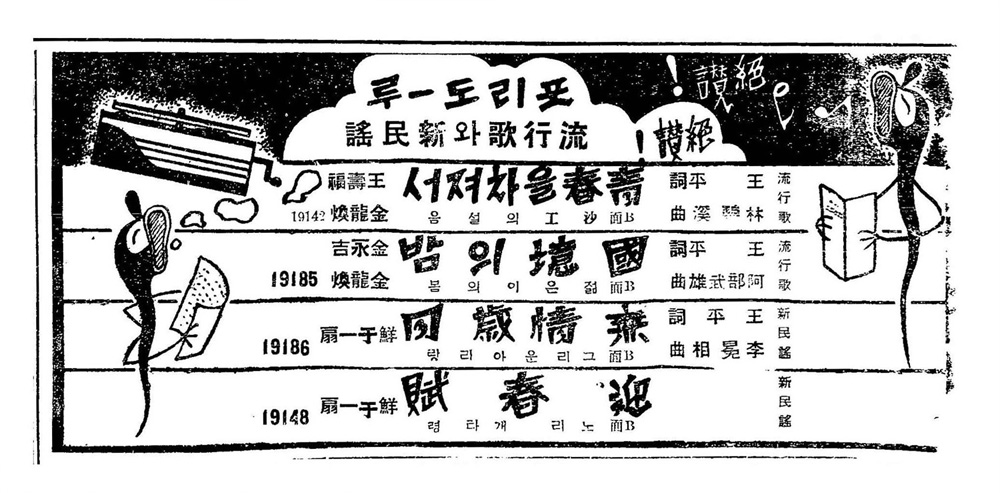 포리도-루
流行歌와新民謠
絕讃!
絕讃!
流行歌
王平詞
林碧溪曲
靑春을차저서
B面沙工의설음
王壽福
金龍煥
19142
流行歌
王平詞
阿部武雄曲
國境의밤
B面젊은이의봄
金永吉
金龍煥
19185
新民謠
王平詞
李冕相曲
無情歲月
B面그리운아라랑
鮮于一扇
19186
新民謠
迎春賦
B面노리개타령
鮮于一扇
19148